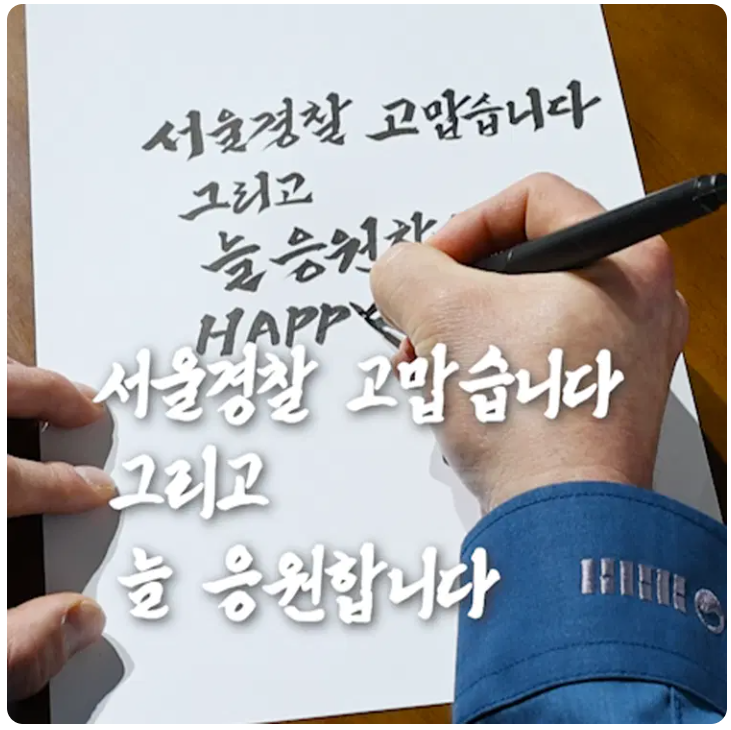 서울경찰 고맙습니다
그리고
늘 응원
HAPPY
서울경찰 고맙습니다
그리고
늘 응원합니다